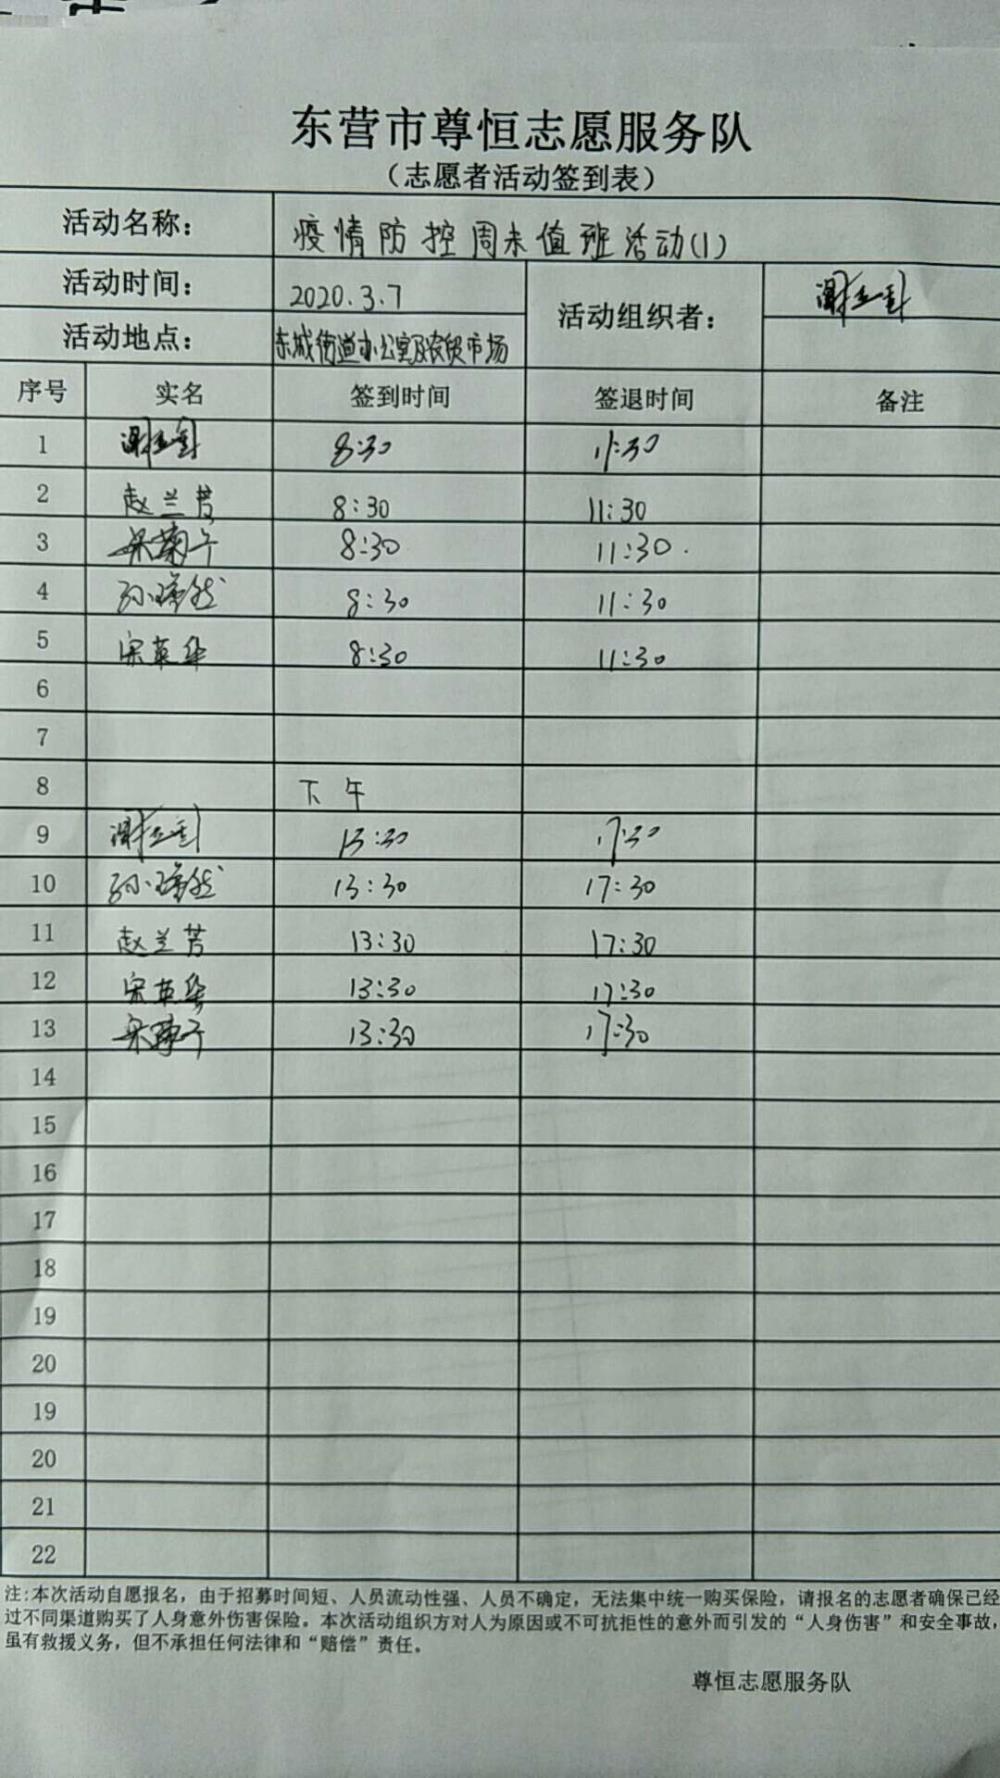 东营市尊恒志愿服务队
（志愿者活动签到表）
活动名称： 疫情防控周末值班活动(1)
活动时间： 2020.3.7 活动组织者：
活动地点： 东城街道办公室及农贸市场
序号 实名 签到时间 签退时间 备注
1 8:30 11:30
2 赵兰芳 8:30 11:30
3 8:30 11:30.
4 8:30 11:30
5 宋英华 8:30 11:30
6
7
8 下午
9 13:30 17:30
10 13:30 17:30
11 赵兰芳 13:30 17:30
12 宋英华 13:30 17:30
13 13:30 17:30
14
15
16
17
18
19
20
19
20
21
22
注：本次活动自愿报名，由于招募时间短、人员流动性强、人员不确定，无法集中统一购买保险，请报名的志愿者确保已经
过不同渠道购买了人身意外伤害保险。本次活动组织方对人为原因或不可抗拒性的意外而引发的“人身伤害”和安全事故，
虽有救援义务，但不承担任何法律和“赔偿”责任。
尊恒志愿服务队